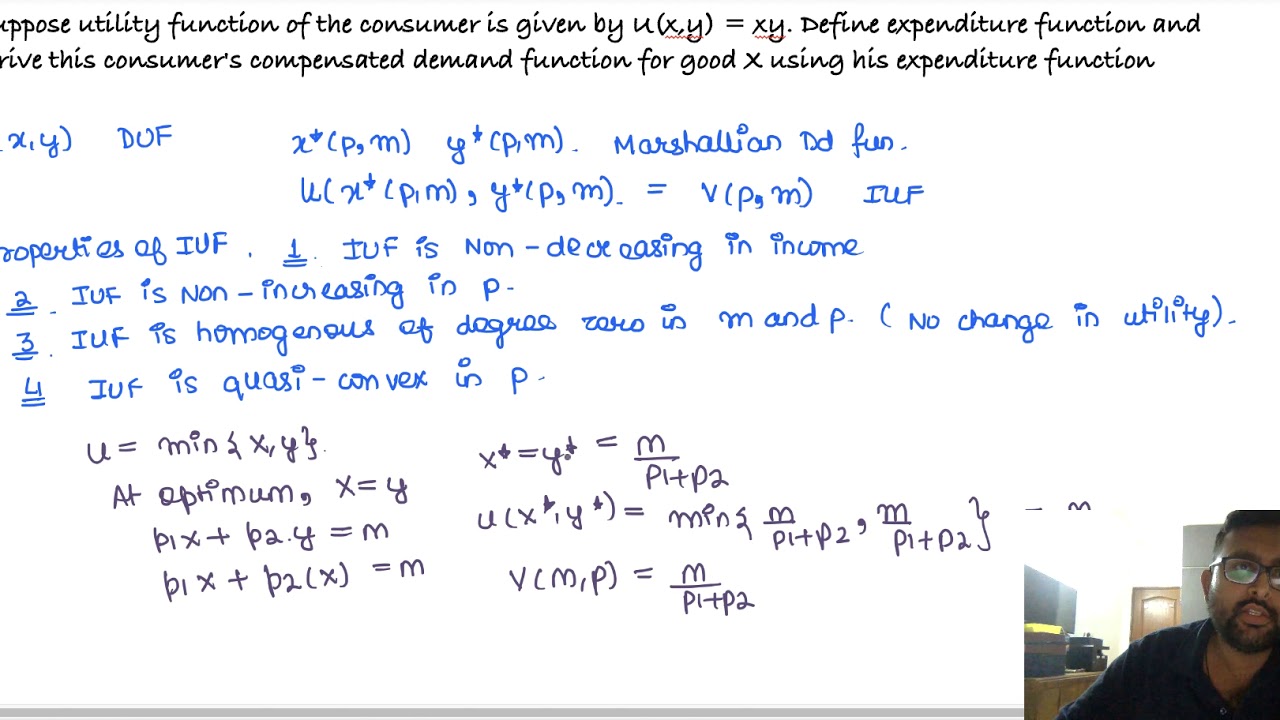 uppose utility function of the consumer is given by u(x,y) = xy. Define expenditure function and
rive this consumer's compensated demand function for good X using his expenditure function
x,y) DUF x*(p,m) y*(p,m). Marshallian Dd fun.
u(x*(p,m), y*(p,m). = v(p,m) IUF
roperties of IUF. 1. IUF is Non-decreasing in income
2. IUF is Non-increasing in p.
3. IUF is homogenous of degree zero in m and p. (No change in utility).
4 IUF is quasi-convex in p.
u = min{x,y}.
At optimum, x=y
p1x + p2.y = m
p1x + p2(x) = m
x* = y* = m/p1+p2
u(x*,y*) = min{m/p1+p2, m/p1+p2} = m
v(m,p) = m/p1+p2